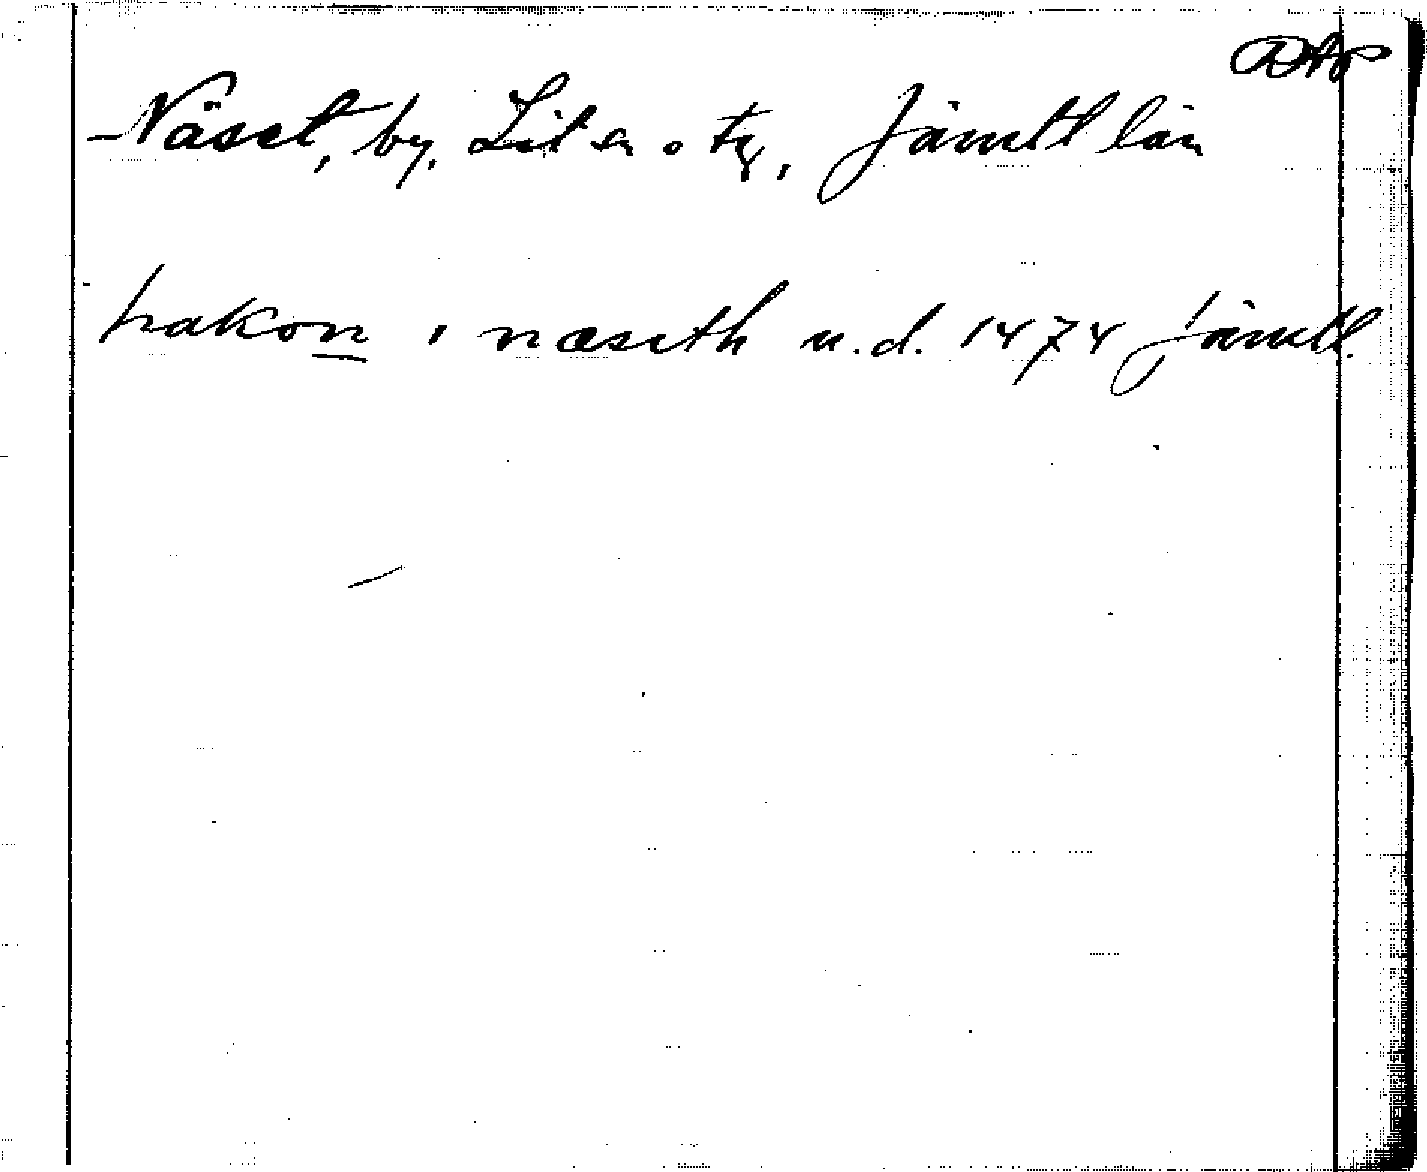 DAP
Näset, by, Lit sn o tg, Jämtl län
hakon i næseth u.d. 1474 Jämtl.